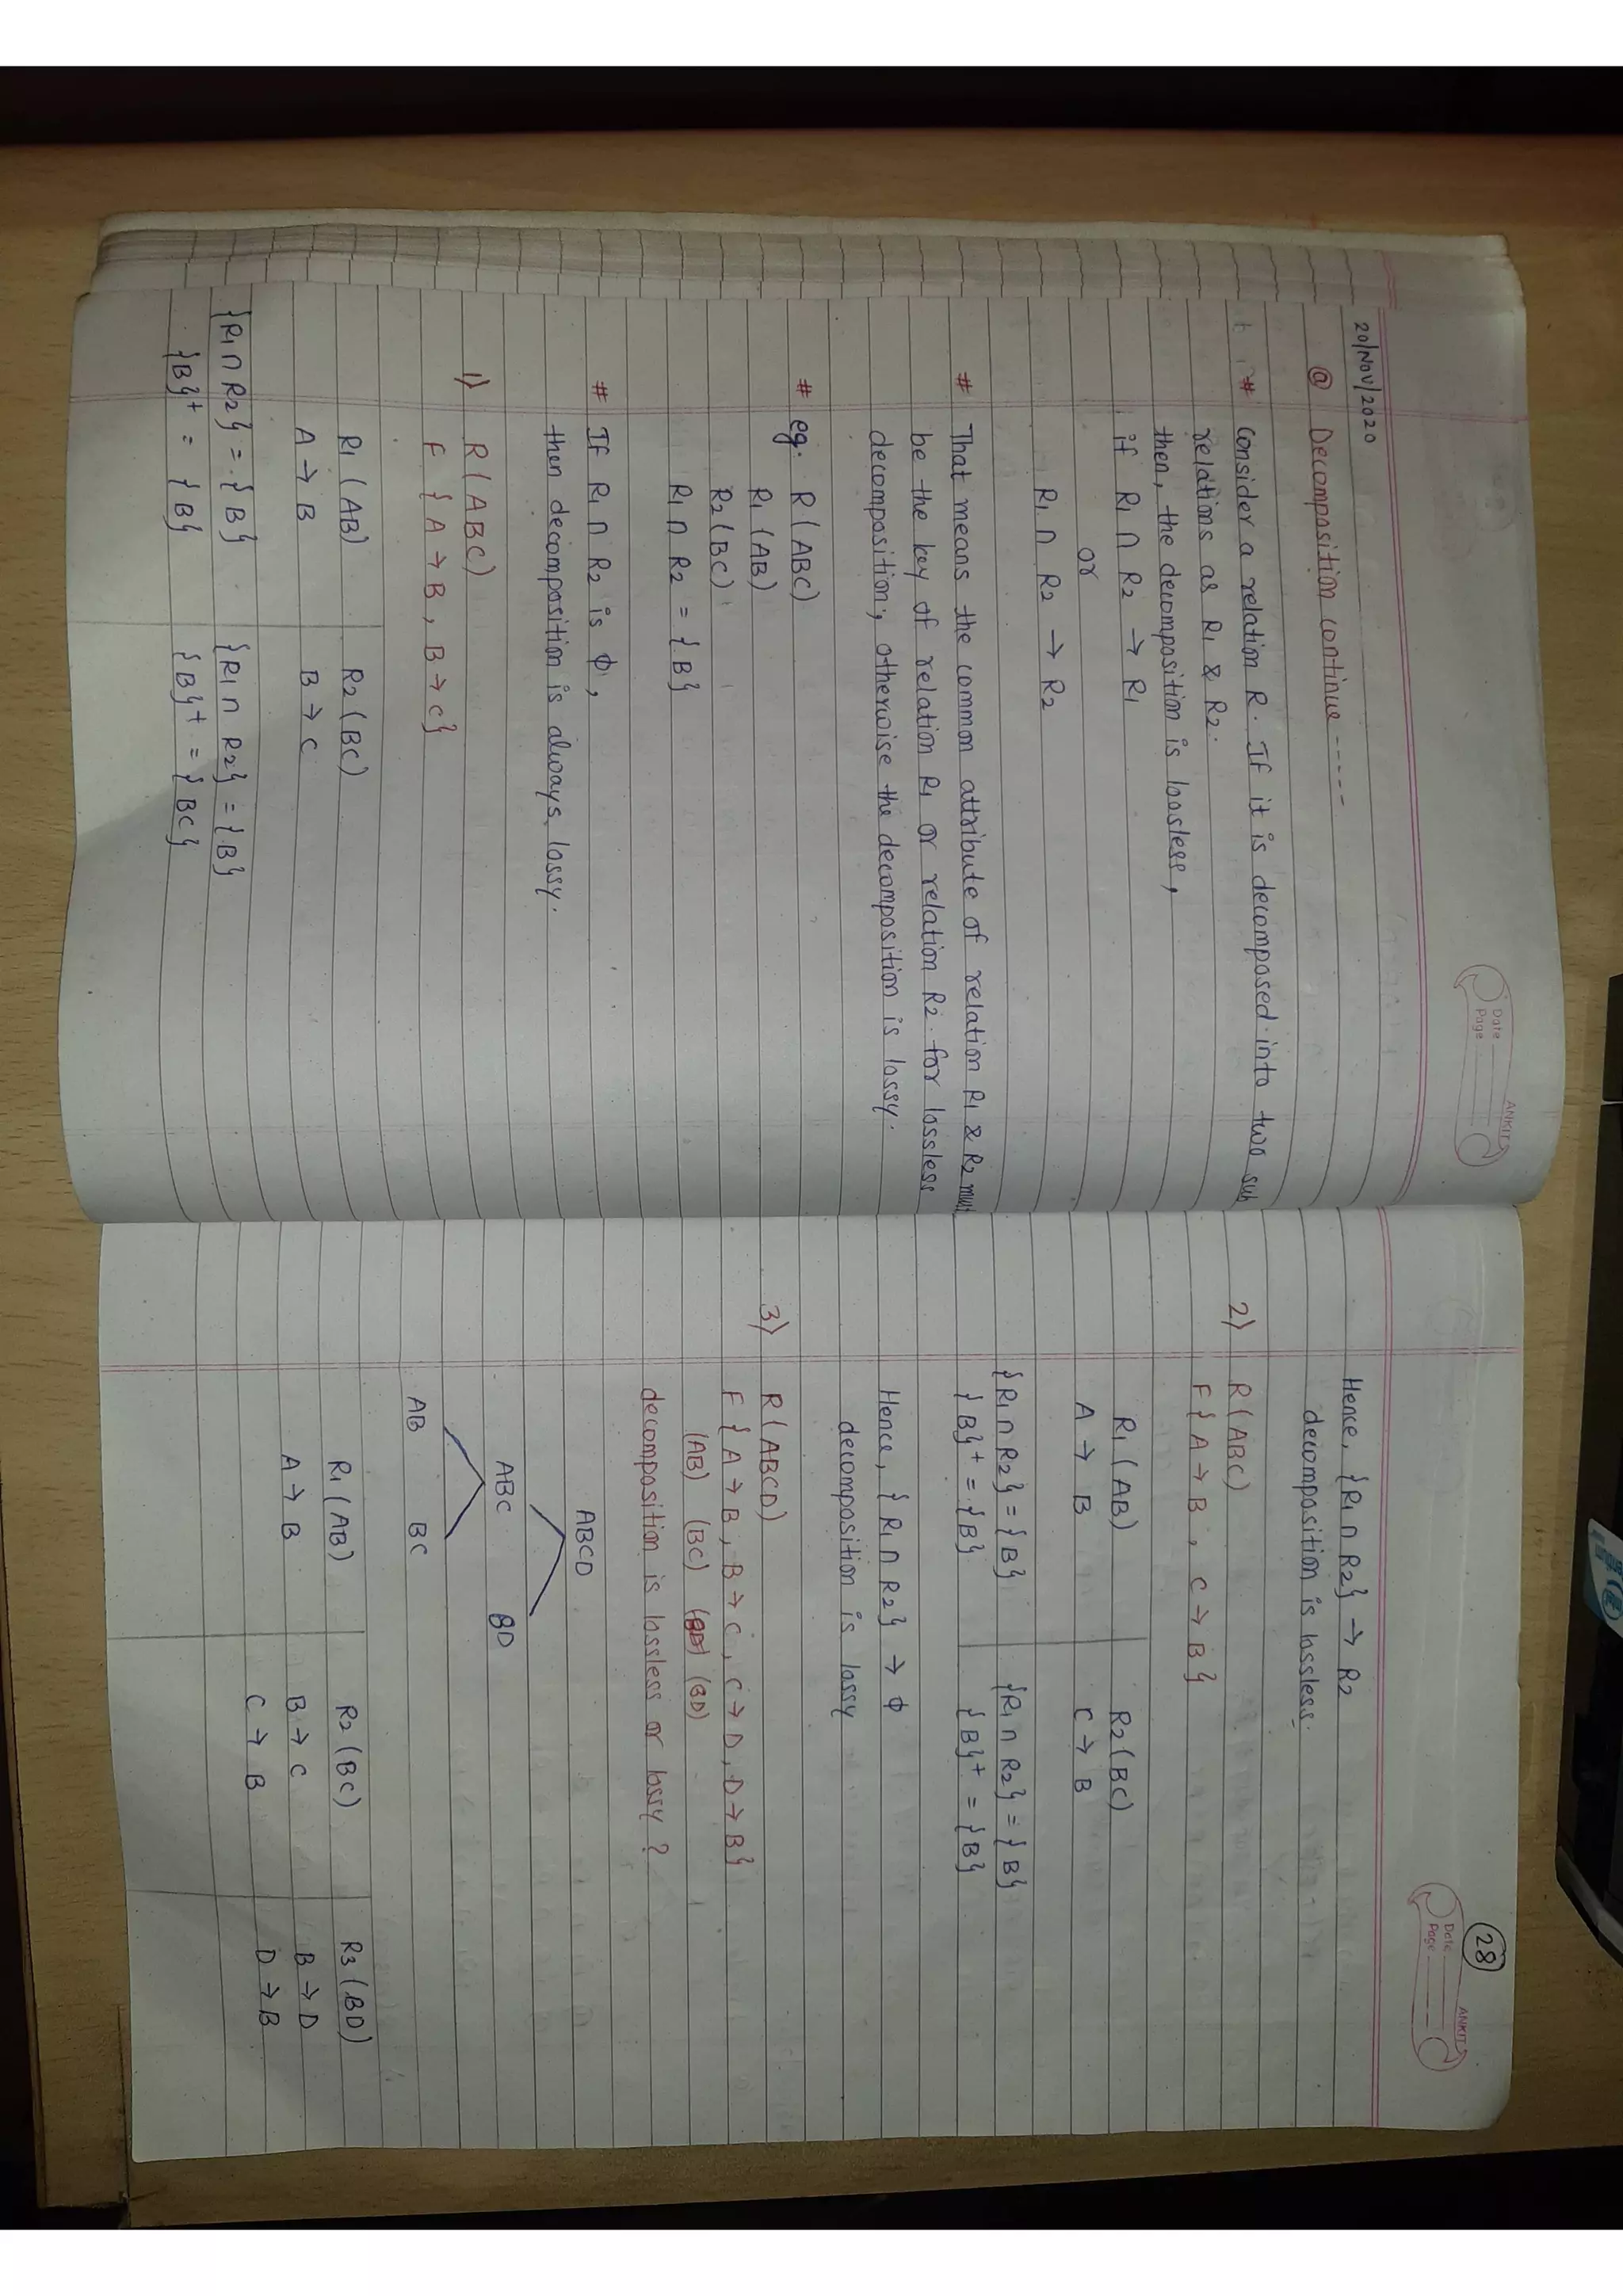 Date
Page
ANKIT
20/Nov/2020
@ Decomposition continue -----
# consider a relation R. If it is decomposed into two sub
relations as R1 & R2.
then, the decomposition is loosless,
if R1 ∩ R2 → R1
or
R1 ∩ R2 → R2
# That means the common attribute of relation R1 & R2 must
be the key of relation R1 or relation R2 for lossless
decomposition; otherwise the decomposition is lossy.
# eg. R(ABC)
R1 (AB)
R2 (BC)
R1 ∩ R2 = {B}
# If R1 ∩ R2 is ϕ,
then decomposition is always lossy.
1) R(ABC)
F {A → B, B → C}
R1 (AB) R2 (BC)
A → B B → C
{R1 ∩ R2} = {B} {R1 ∩ R2} = {B}
{B}+ = {B} {B}+ = {BC}
28
Date
Page
ANKIT
Hence, {R1 ∩ R2} → R2
decomposition is lossless.
2) R(ABC)
F {A → B, C → B}
R1 (AB) R2 (BC)
A → B C → B
{R1 ∩ R2} = {B} {R1 ∩ R2} = {B}
{B}+ = {B} {B}+ = {B}
Hence, {R1 ∩ R2} → ϕ
decomposition is lossy
3) R(ABCD)
F {A → B, B → C, C → D, D → B}
(AB) (BC) (BD)
decomposition is lossless or lossy?
ABCD
ABC BD
AB BC
R1 (AB) R2 (BC) R3 (BD)
A → B B → C B → D
C → B D → B